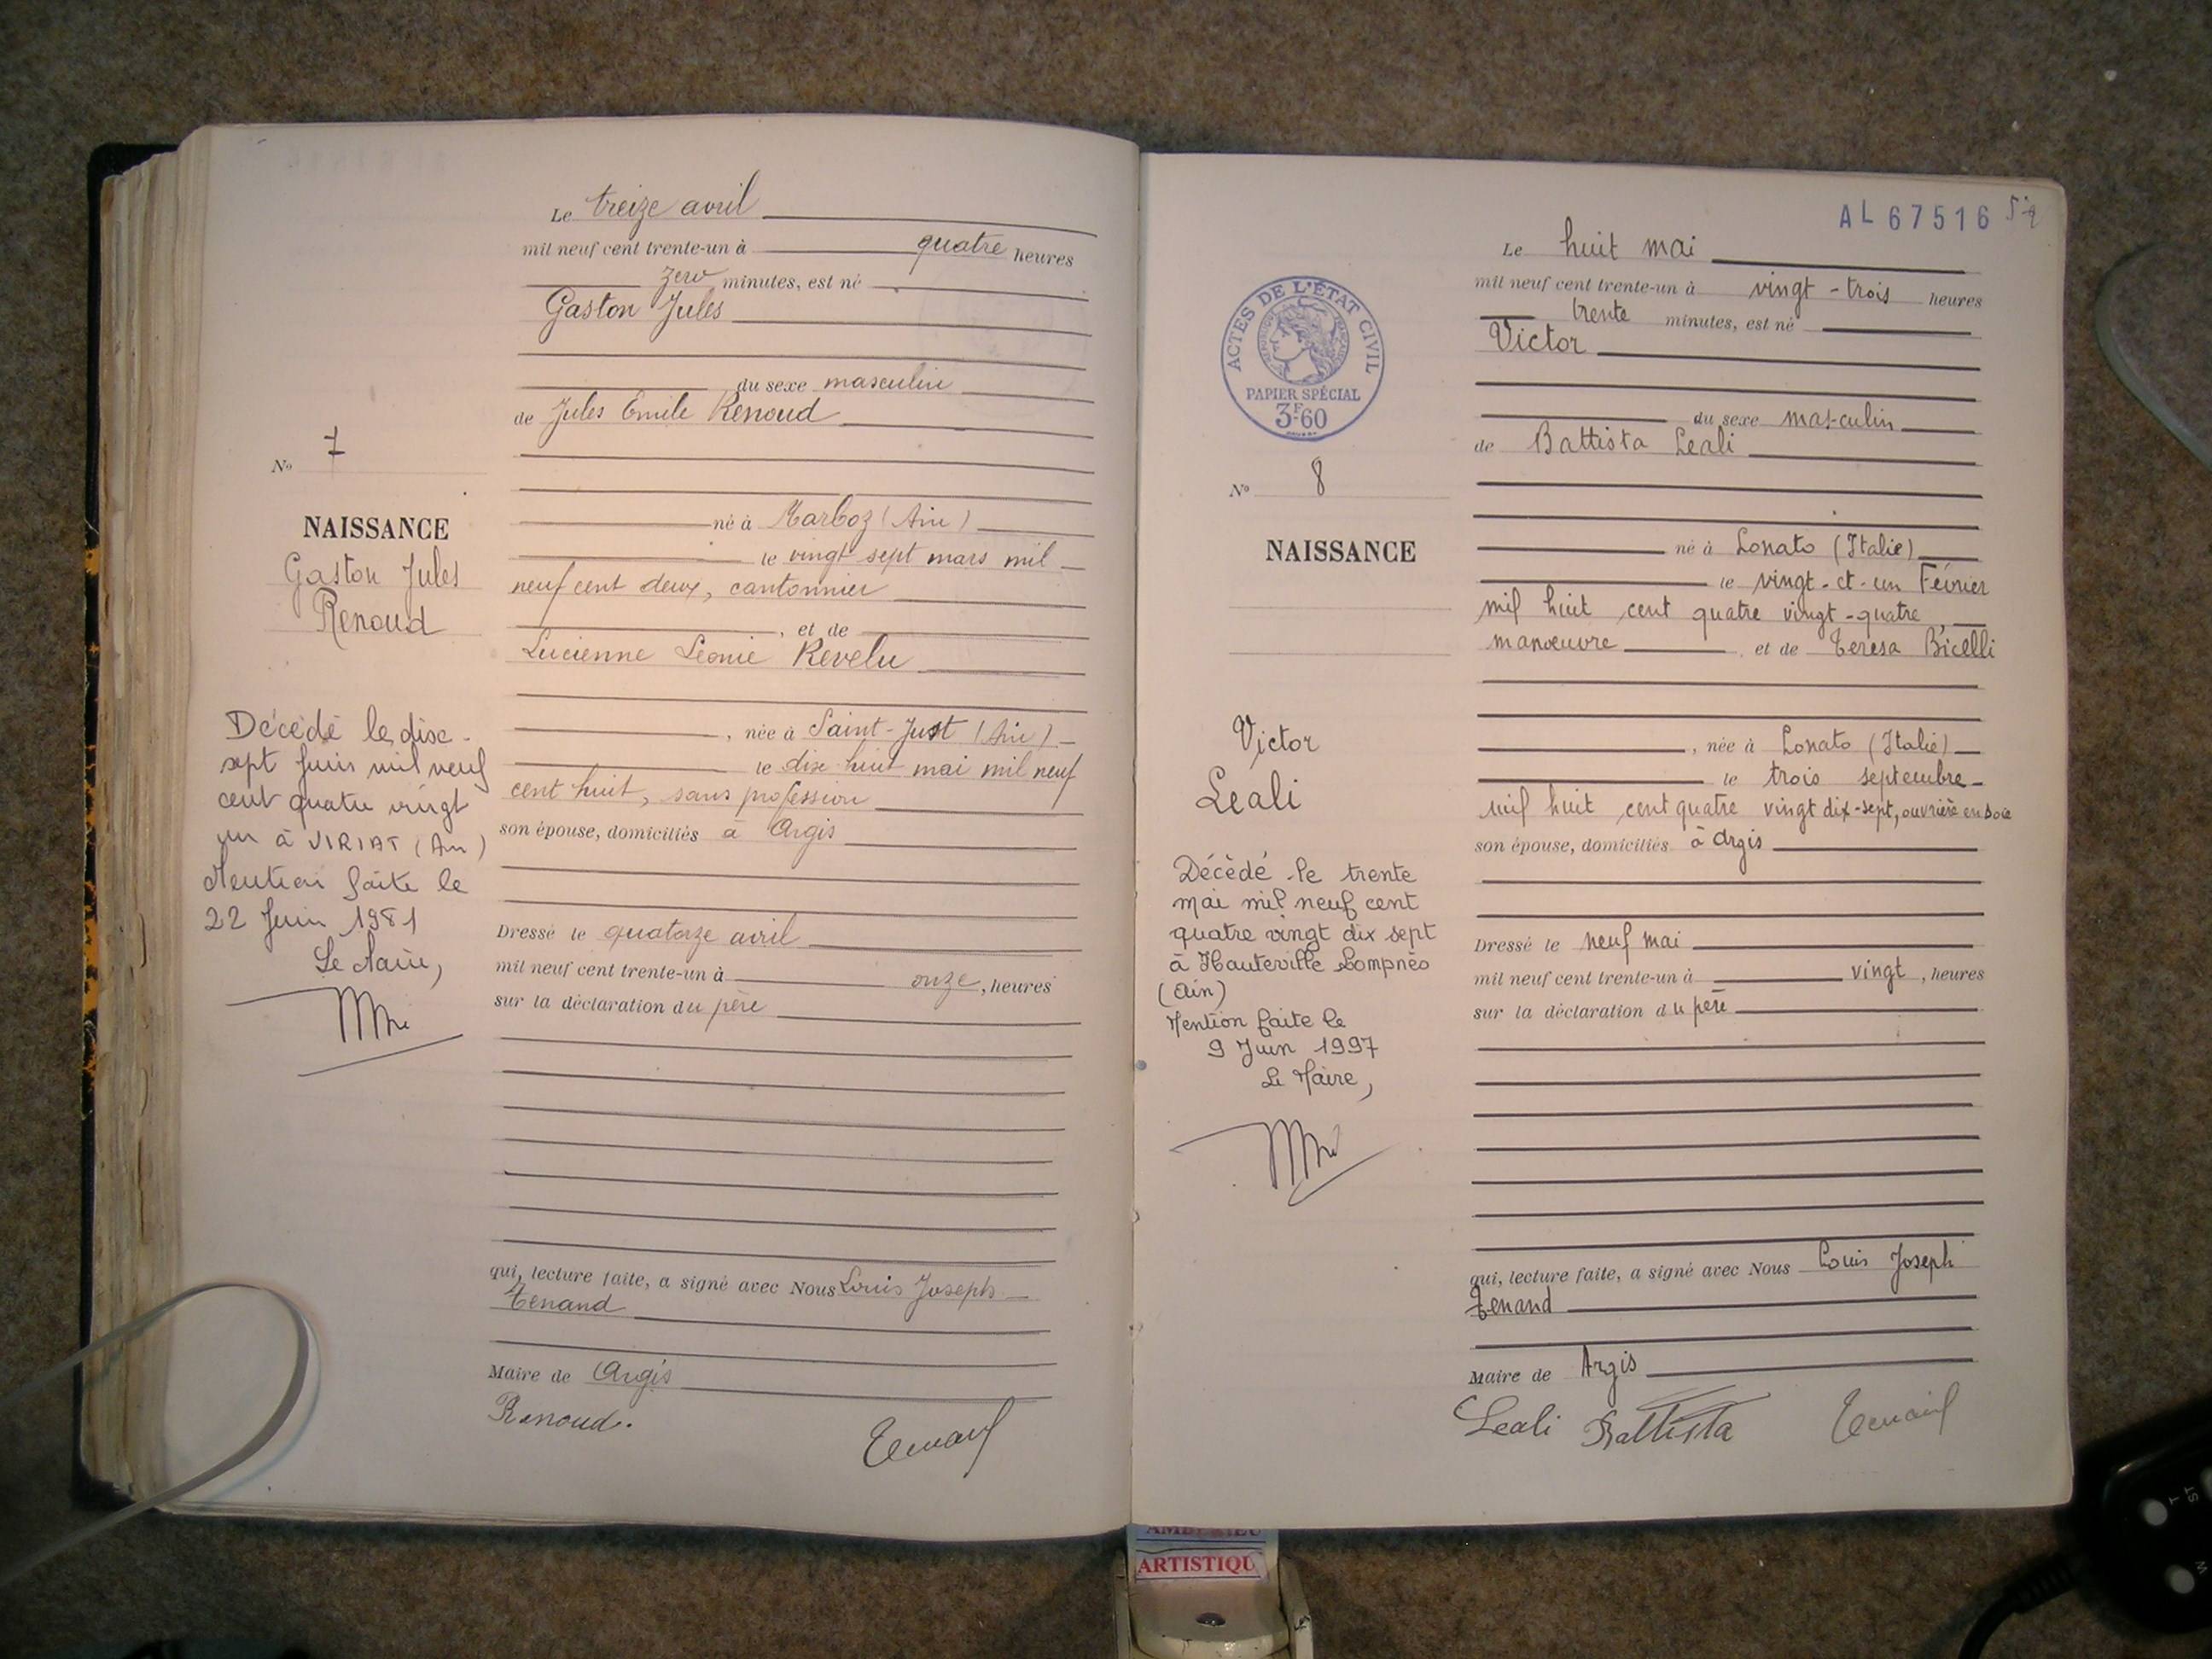 Le treize avril
mil neuf cent trente-un à quatre heures
zero minutes, est né
Gaston Jules
du sexe masculin
de Jules Emile Renoud
No 7
NAISSANCE
Gaston Jules
Renoud
né à Marboz (Ain)
le vingt sept mars mil
neuf cent deux, cantonnier
, et de
Lucienne Léonie Revelu
, née à Saint-Just (Ain)
le dix huit mai mil neuf
cent huit, sans profession
son épouse, domiciliés à Argis
Dressé le quatorze avril
mil neuf cent trente-un à onze, heures
sur la déclaration du père
qui, lecture faite, a signé avec Nous Louis Joseph
Tenand
Maire de Argis
Renoud.
Tenand
Décédé le dix
sept Juin mil neuf
cent quatre vingt
un à VIRIAT (Ain)
Mention faite le
22 Juin 1981
Le Maire,
AL 67516
Le huit mai
mil neuf cent trente-un à vingt-trois heures
trente minutes, est né
Victor
du sexe masculin
de Battista Leali
ACTES DE L'ÉTAT CIVIL
RÉPUBLIQUE FRANÇAISE
PAPIER SPÉCIAL
3F60
No 8
NAISSANCE
né à Lonato (Italie)
le vingt-et-un Février
mil huit cent quatre vingt-quatre,
manœuvre et de Teresa Bicelli
, née à Lonato (Italie)
le trois septembre
mil huit cent quatre vingt dix-sept, ouvrière en soie
son épouse, domiciliés à Argis
Dressé le neuf mai
mil neuf cent trente-un à vingt, heures
sur la déclaration du père
qui, lecture faite, a signé avec Nous Louis Joseph
Tenand
Maire de Argis
Leali Battista Tenand
Victor
Leali
Décédé le trente
mai mil neuf cent
quatre vingt dix sept
à Hauteville Lompnès
(Ain)
Mention faite le
9 Juin 1997
Le Maire,
AMBERIEU
ARTISTIQU
T
ST
W